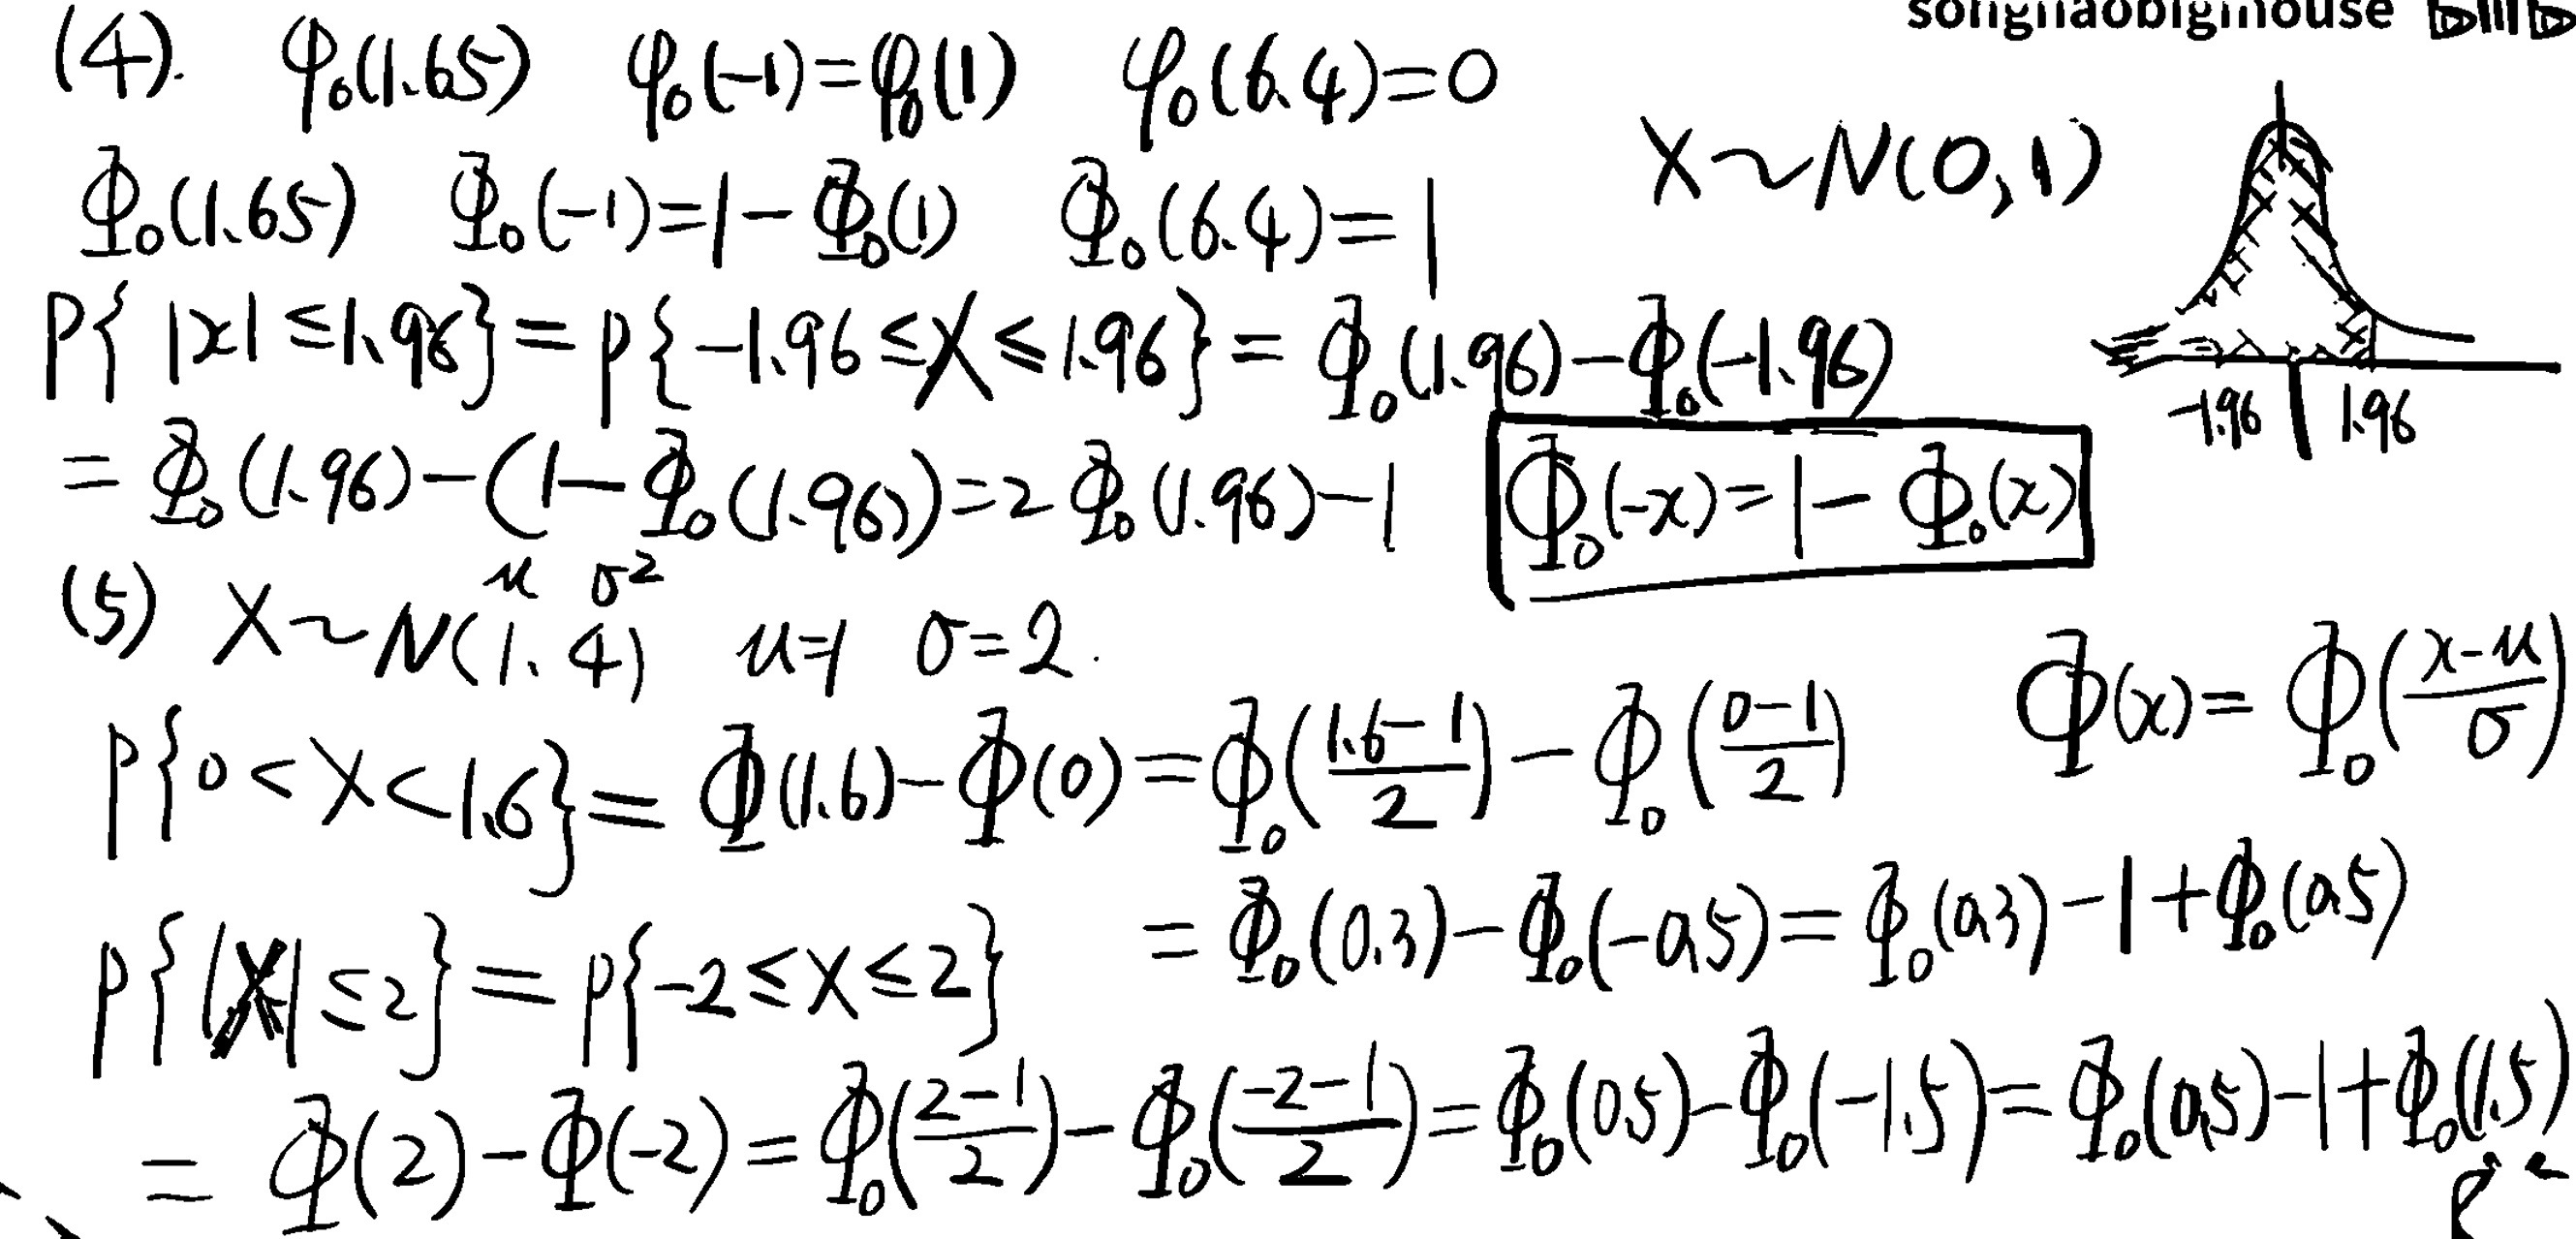 songhaobigihouse bilibili
(4). φ₀(1.65) φ₀(-1)=φ₀(1) φ₀(6.4)=0
X~N(0,1)
Φ₀(1.65) Φ₀(-1)=1-Φ₀(1) Φ₀(6.4)=1
P{|x|≤1.96}=P{-1.96≤X≤1.96}=Φ₀(1.96)-Φ₀(-1.96)
-1.96 1.96
=Φ₀(1.96)-(1-Φ₀(1.96))=2Φ₀(1.96)-1
Φ₀(-x)=1-Φ₀(x)
μ σ²
(5) X~N(1、4) μ=1 σ=2.
Φ(x)=Φ₀((x-μ)/σ)
P{0<X<1.6}=Φ(1.6)-Φ(0)=Φ₀((1.6-1)/2)-Φ₀((0-1)/2)
=Φ₀(0.3)-Φ₀(-0.5)=Φ₀(0.3)-1+Φ₀(0.5)
P{|X|≤2}=P{-2≤X≤2}
=Φ(2)-Φ(-2)=Φ₀((2-1)/2)-Φ₀((-2-1)/2)=Φ₀(0.5)-Φ₀(-1.5)=Φ₀(0.5)-1+Φ₀(1.5)